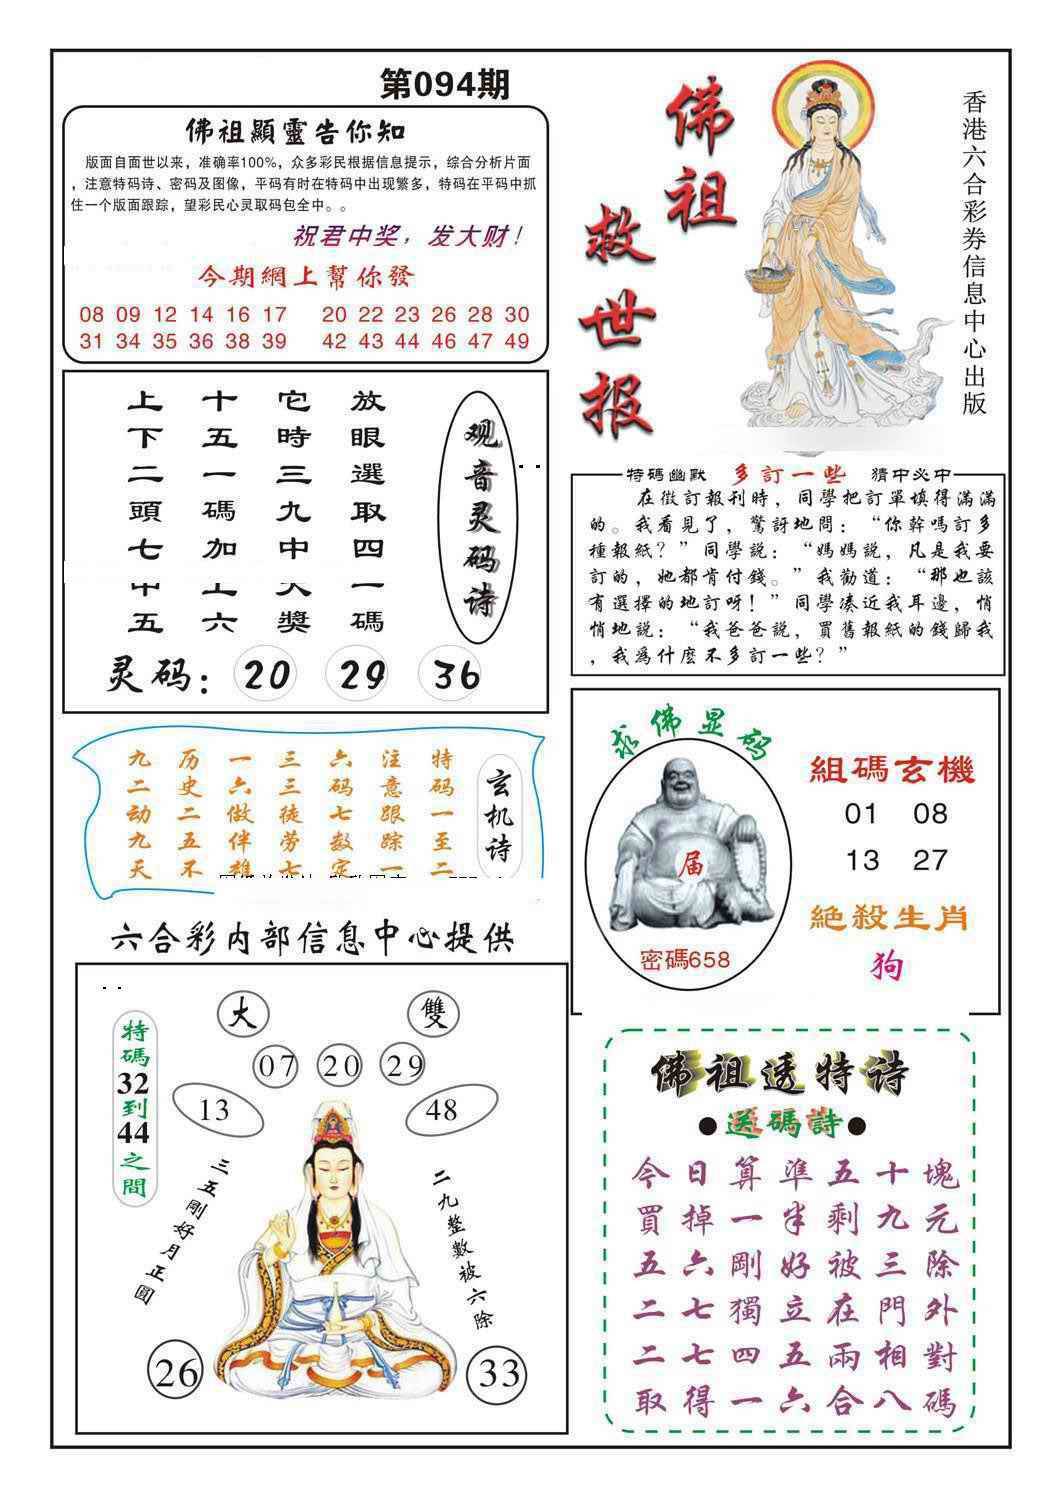 第094期
佛祖顯靈告你知
版面自面世以来，准确率100%，众多彩民根据信息提示，综合分析片面
，注意特码诗、密码及图像，平码有时在特码中出现繁多，特码在平码中抓
住一个版面跟踪，望彩民心灵取码包全中。。
祝君中奖，发大财！
今期網上幫你發
08 09 12 14 16 17 20 22 23 26 28 30
31 34 35 36 38 39 42 43 44 46 47 49
佛祖
救世报
香港六合彩券信息中心出版
观音灵码诗
放眼選取四一碼
它時三九中大獎
十五一碼加上六
上下二頭七中五
灵码：20 29 36
特碼幽默 多訂一些 猜中必中
在徵訂報刊時，同學把訂單填得滿滿
的。我看見了，驚訝地問：“你幹嗎訂多
種報紙？”同學説：“媽媽説，凡是我要
訂的，她都肯付錢。”我勸道：“那也該
有選擇的地訂呀！”同學凑近我耳邊，悄
悄地説：“我爸爸説，買舊報紙的錢歸我
，我爲什麽不多訂一些？”
玄机诗
特码一至二
注意跟踪一
六码七数定
三三徒劳七
一六做伴雄
历史二五不
九二动九天
求佛显码
届
密碼658
組碼玄機
01 08
13 27
絕殺生肖
狗
六合彩内部信息中心提供
大 雙
07 20 29
13 48
特碼32到44之間
三五剛好月正圓
二九整數被六除
26 33
佛祖透特诗
●送碼詩●
今日算準五十塊
買掉一半剩九元
五六剛好被三除
二七獨立在門外
二七四五兩相對
取得一六合八碼